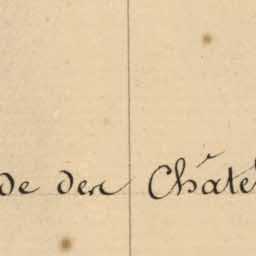 de den Châte